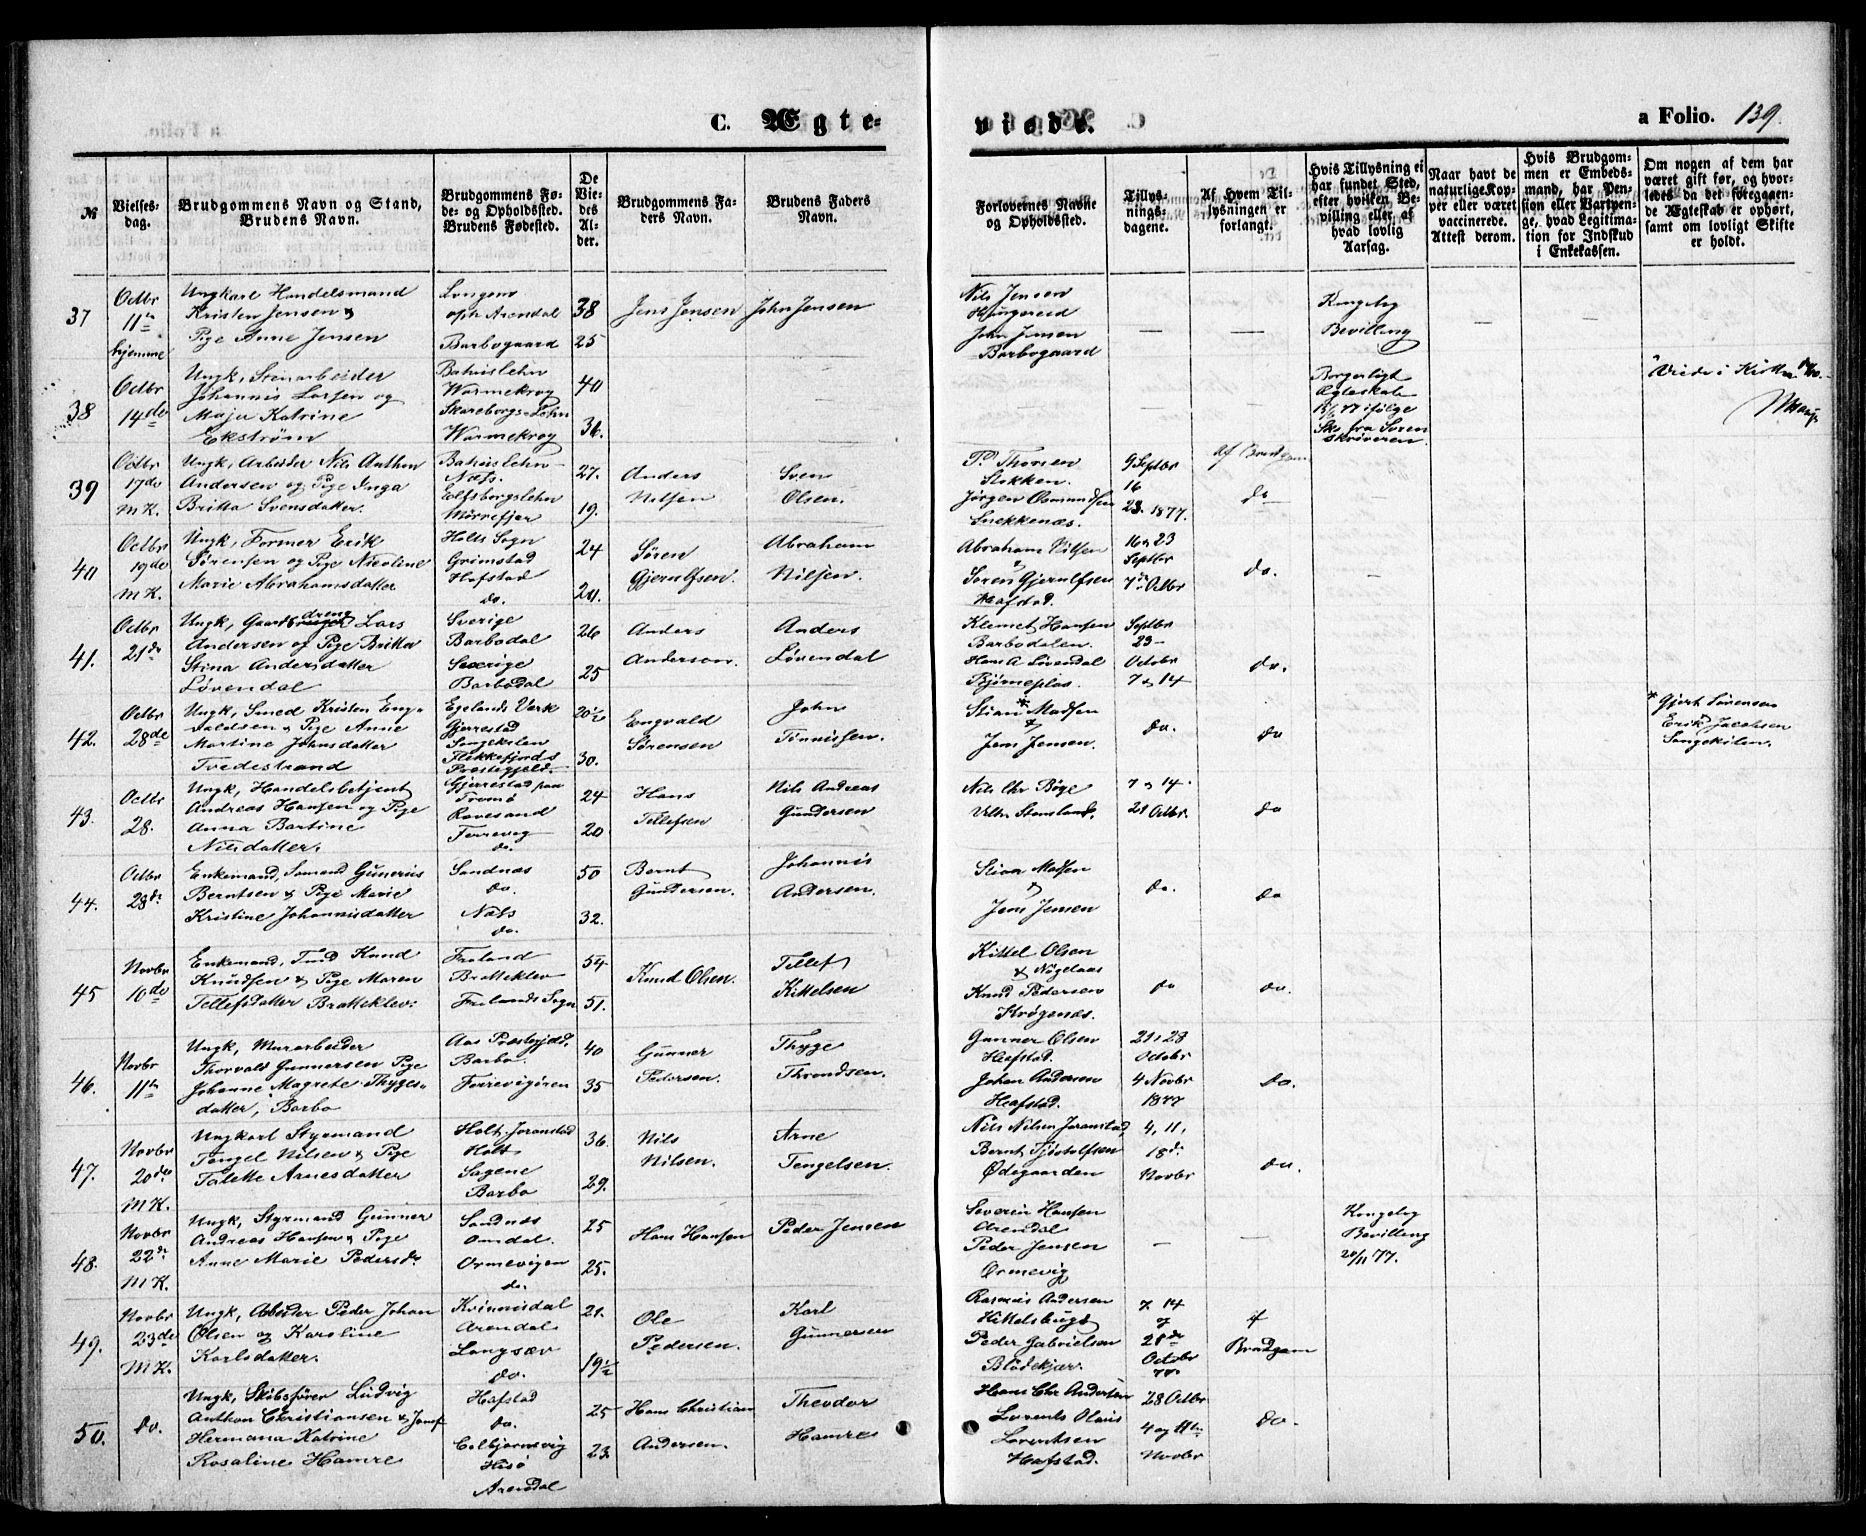 C. Ægte-
viede.
a Folio. 139.
№
Vielses-
dag.
Brudgommens Navn og Stand,
Brudens Navn.
Brudgommens Fø-
de- og Opholdssted.
Brudens Fødested.
De
Vie-
des
Al-
der.
Brudgommens Fa-
ders Navn.
Brudens Faders
Navn.
Forlovernes Navne
og Opholdssted.
Tillys-
nings-
dagene.
Af Hvem Til-
lysningen er
forlangt.
Hvis Tillysning ei
har fundet Sted,
efter hvilken Be-
villing eller af
hvad lovlig
Aarsag.
Naar havt de
naturlige Kop-
per eller været
vaccinerede.
Attest derom.
Hvis Brudgom-
men er Embeds-
mand, har Pen-
sion eller Vartpen-
ge, hvad Legitima-
tion for Indskud
i Enkekassen.
Om nogen af dem har
været gift før, og hvor-
ledes da det foregaaen-
de Ægteskab er ophørt,
samt om lovligt Skifte
er holdt.
37
Octbr
11te
hjemme
Ungkarl Handelsmand
Kristen Jensen &
Pige Anne Jensen
Longum
oph Arendal
Barbogaard
38
25
Jens Jensen
John Jensen
Nils Jensen
John Jensen
Barbogaard
— —
Kongelig
Bevilling
— —
38
Octbr
14de
Ungk, Stenarbeider
Johannis Larsen og
Maja Katrine
Ekstrøm
Bahuslehn
Warmekrog
Skareborgs-Lehn
Warmekrog
40
36.
— — —
Borgerligt
Ægteskab
ifølge
fra Soren
skriveren
39
Octbr
17de
M K.
Ungk, Arbeider Nils Anthon
Andersen og Pige Inga
Britta Svensdatter.
Bahuslehn
Næs.
Elfsborgslehn
Mørrefjær
27.
19.
Anders
Nilsen
Sven
Olsen.
Stokken.
Jørgen Osmundsen
Snekkenæs.
9 Septbr
16
23. 1877.
af Brudgom
do
40
Octbr
19de
M K.
Ungk, Former Erik
Sørensen og Pige Nicoline
Marie Abrahamsdatter
Holts Sogn
Grimstad
Hafstad
do.
24
20.
Søren
Gjerulfsen.
Abraham
Nilsen.
Abraham Nilsen
&
Soren Gjerulfsen
Hafstad.
16 & 23
Septbr
7de Octbr
do.
—
41.
Octbr
21de
Ungk, Gaardsdreng Lars
Andersen og Pige Britta
Stina Andersdatter
Løvendal
Sverige
Barbodal
Sverige
Barbodal
26
25
Anders
Anderson.
Anders
Løvendal
Klemet Hansen
Barbodalen.
Hans A Løvendal
Bjørneplas.
Septbr
23—
Octobr
7 & 14
do.
42.
Octbr
28de
Ungk, Smed Kristen Eng-
valdsen & Pige Anne
Martine Johnsdatter
Tvedestrand
Egelands Verk
Gjerrestad
Songekilen
Flekkefjords
Prestegjeld.
20½
30.
Engvald
Sørensen
John
Tønnisen.
Stian Madsen
&
Jens Jensen.
do.
do
* Gjert Sørensen
Erik Jacobsen
Songekilen.
43.
Octbr
28.
Ungk, Handelsbetjent
Andreas Hansen og Pige
Anna Bartine
Nilsdatter.
Gjerrestad paa
Tromø
Revesand
Torrevig
do.
24
20
Hans
Tellefsen
Nils Andreas
Gundersen
Nils Chr Bøge
7 & 14
21 Octbr.
do
44.
Octbr
28de
Enkemand, Sømand Gunerius
Berntsen & Pige Marie
Kristine Johannisdatter
Sandnæs
do.
Næs
do.
50
32.
Bernt
Gundersen.
Johannis
Andersen.
Stian Madsen
&
Jens Jensen
do.
do
45
Novbr
10de
Enkemand, Knud
Knudsen & Pige Maren
Tellefsdatter Bratteklev.
Froland
Bratteklev
Frolands Sogn
54
51.
Knud Olsen.
Tellef
Kittelsen
Kittel Olsen
& Nøgelaas
Knud Pedersen
Krøgenæs.
do
do.
46.
Novbr
11te
Ungk, Murarbeider
Thorvald Gunnersen Pige
Johanne Magrete Thyges-
datter, Barbo
Aas Prestegjeld.
Barbo.
Torrevigören
40
35
Gunner
Pedersen.
Thyge
Throndsen.
Gunner Olsen
Hafstad.
Johan Andersen
Hafstad.
21 & 28
Octobr
4 Novbr
1877
do.
47.
Novbr
20de
M K.
Ungkarl Styrmand
Tengel Nilsen & Pige
Talette Arnesdatter
Holt, Joranstad
Holt
Sagene
Barbo
36.
29.
Nils
Nilsen.
Arne
Tengelsen.
Nils Nilsen Joranstad,
Bernt Tjøstolfsen
Ødegaarden
4, 11,
18de
Novbr
do.
48.
Novbr
22de
M K.
Ungk, Styrmand Gunner
Andreas Hansen & Pige
Anne Marie Pedersdr
Sandnæs
Omdal.
Ormevigen
do.
25
25.
Hans Hansen
Peder Jensen
Severin Hansen
Arendal
Peder Jensen
Ormevig
— —
Kongelig
Bevilling
20/11 77.
49.
Novbr
23de
M K.
Ungk, Arbeider Peder Johan
Olsen og Karoline
Karlsdatter.
Kvinnisdal
Arendal
Langsæv
do.
21.
19½
Ole
Pedersen.
Karl
Gunnersen
Rasmus Andersen
Peder Gabrielsen
Blødekjær.
7. 14
&
21de
Octobr
77
af
Brudgom
50.
do.
Ungk, Skibsfører Ludvig
Anthon Christiansen & Jomf
Hermana Katrine
Rosaline Hamre
Hafstad
do.
Colbjørnsvig
Hisø
Arendal
25
23.
Hans Christian
Andersen.
Theodor
Hamre
Hans Chr Andersen
Lorents Olais
Lorentsen
Hafstad.
28 Octbr
4 og 11te
Novbr
do.